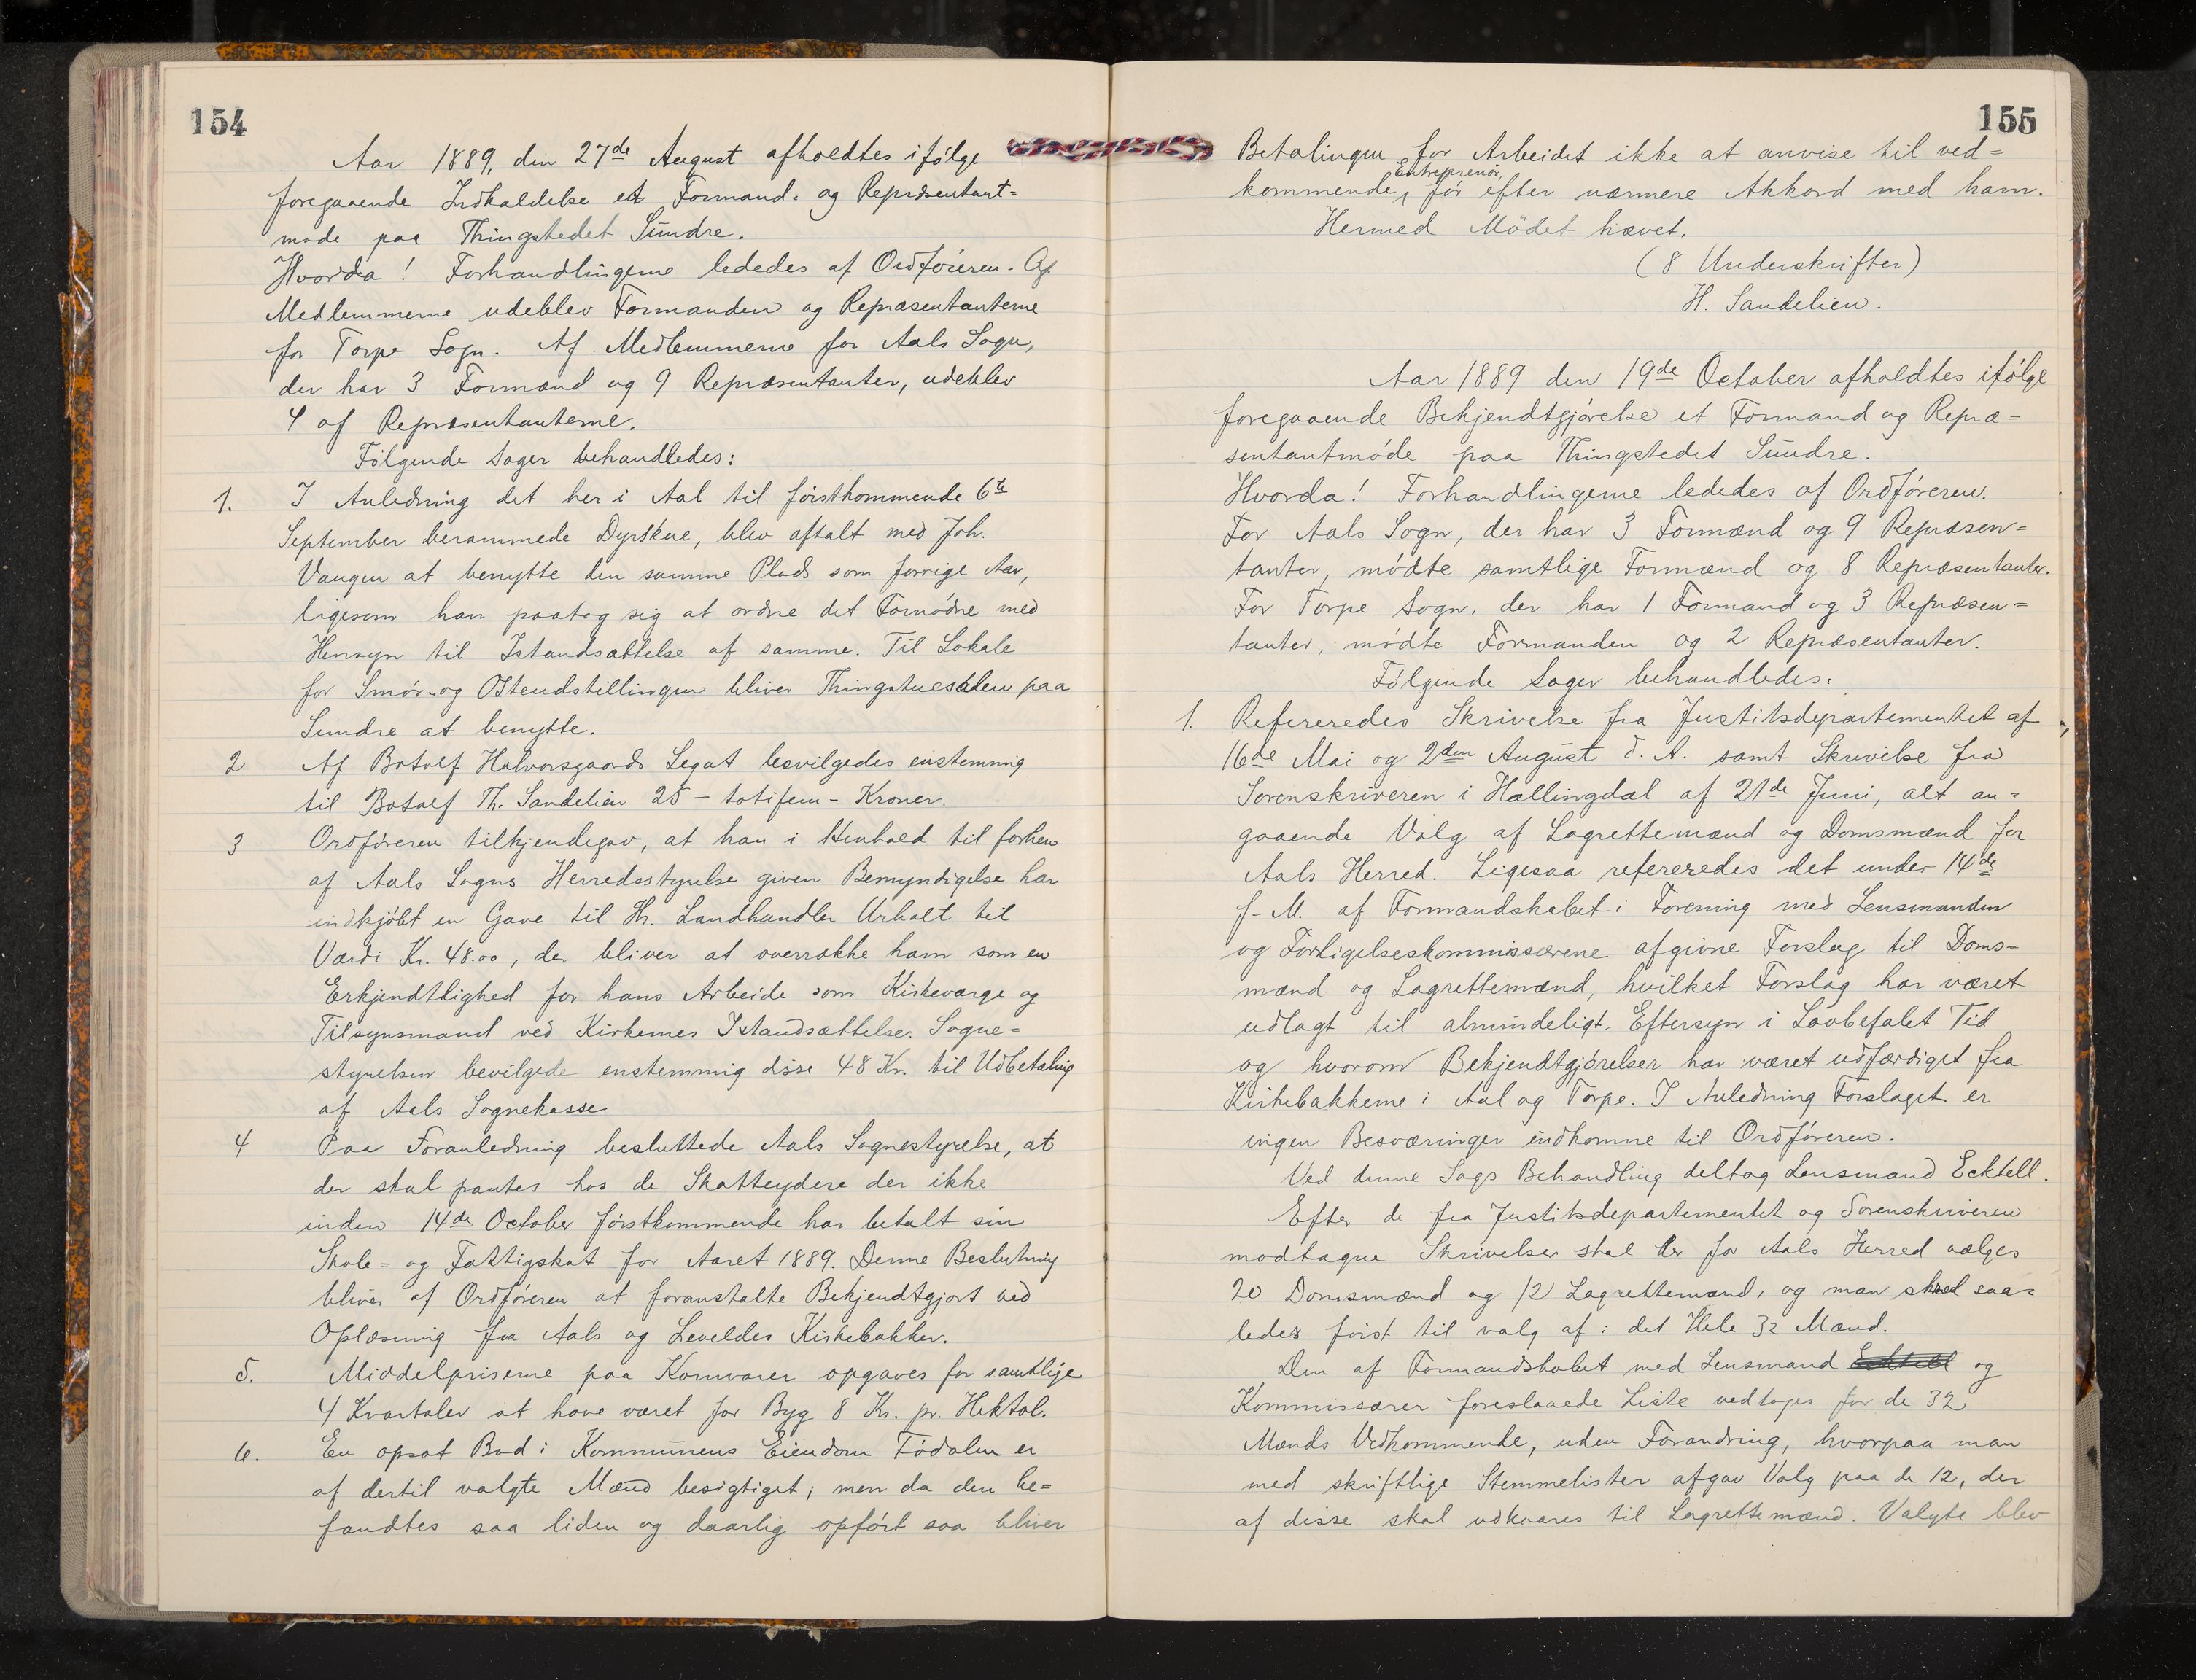 154
Aar 1889, den 27de August afholdtes ifølge
foregaaende Indkaldelse et Formand- og Repræsentant-
møde paa Thingstedet Sundre.
Hvorda! Forhandlingerne lededes af Ordføreren. Af
Medlemmerne udeblev Formanden og Repræsentanterne
for Torpe Sogn. Af Medlemmerne for Aals Sogn,
der har 3 Formænd og 9 Repræsentanter, udeblev
4 af Repræsentanterne.
Følgende Sager behandledes:
1. I Anledning det her i Aal til førstkommende 6te
September berammede Dyrskue, blev aftalt med Joh.
Vangen at benytte den samme Plads som forrige Aar,
ligesom han paatog sig at ordne det Fornødne med
Hensyn til Istandsættelse af samme. Til Lokale
for Smør- og Osteudstillingen bliver Thingstuesalen paa
Sundre at benytte.
2 Af Botolf Halvorsgaards Legat bevilgedes enstemmig
til Botolf Th. Sandelien 25 - totifem - Kroner.
3 Ordføreren tilkjendegav, at han i Henhold til forhen
af Aals Sogns Herredsstyrelse given Bemyndigelse har
indkjøbt en Gave til Hr. Landhandler Urholt til
Værdi Kr. 48.00, der bliver at overrække ham som en
Erkjendtlighed for hans Arbeide som Kirkeværge og
Tilsynsmand ved Kirkernes Istandsættelse. Sogne-
styrelsen bevilgede enstemmig disse 48 Kr. til Udbetaling
af Aals Sognekasse
4 Paa Foranledning besluttede Aals Sognestyrelse, at
der skal pantes hos de Skatteydere der ikke
inden 14de October førstkommende har betalt sin
Skole- og Fattigskat for Aaret 1889. Denne Beslutning
bliver af Ordføreren at foranstalte Bekjendtgjort ved
Oplæsning fra Aals og Leveldes Kirkebakker.
5. Middelpriserne paa Kornvarer opgaves for samtlige
4 Kvartaler at have været for Byg 8 Kr. pr. Hektol.
6. En opsat Bod i Kommunens Eiendom Fødalen er
af dertil valgte Mænd besigtiget; men da den be-
fandtes saa liden og daarlig opført saa bliver
155
Betalingen for Arbeidet ikke at anvise til ved-
kommende Entreprenør, før efter nærmere Akkord med ham.
Hermed Mødet hævet.
(8 Underskrifter)
H. Sandelien.
Aar 1889 den 19de October afholdtes ifølge
foregaaende Bekjendtgjørelse et Formand og Repræ-
sentantmøde paa Thingstedet Sundre.
Hvorda! Forhandlingerne lededes af Ordføreren.
For Aals Sogn, der har 3 Formænd og 9 Repræsen-
tanter, mødte samtlige Formænd og 8 Repræsentanter.
For Torpe Sogn, der har 1 Formand og 3 Repræsen-
tanter, mødte Formanden og 2 Repræsentanter.
Følgende Sager behandledes:
1. Refereredes Skrivelse fra Justitsdepartementet af
16de Mai og 2den August d. A. samt Skrivelse fra
Sorenskriveren i Hallingdal af 21de Juni, alt an-
gaaende Valg af Lagrettemænd og Domsmænd for
Aals Herred. Ligesaa refereredes det under 14de
f. M. af Formandskabet i Forening med Lensmanden
og Forligelseskommissærene afgivne Forslag til Doms-
mænd og Lagrettemænd, hvilket Forslag har været
udlagt til almindeligt Eftersyn i Lovbefalet Tid
og hvorom Bekjendtgjørelser har været udfærdiget fra
Kirkebakkerne i Aal og Torpe. I Anledning Forslaget er
ingen Besværinger indkomne til Ordføreren.
Ved denne Sags Behandling deltog Lensmand Ecktell.
Efter de fra Justitsdepartementet og Sorenskriveren
modtagne Skrivelser skal der for Aals Herred vælges
20 Domsmænd og 12 Lagrettemænd, og man skred saa-
ledes først til valg af i det Hele 32 Mænd.
Den af Formandskabet med Lensmand Ecktell og
Kommissærer foreslaaede Liste vedtoges for de 32
Mænds Vedkommende, uden Forandring, hvorpaa man
med skriftlige Stemmelister afgav Valg paa de 12, der
af disse skal udkaares til Lagrettemænd. Valgte blev